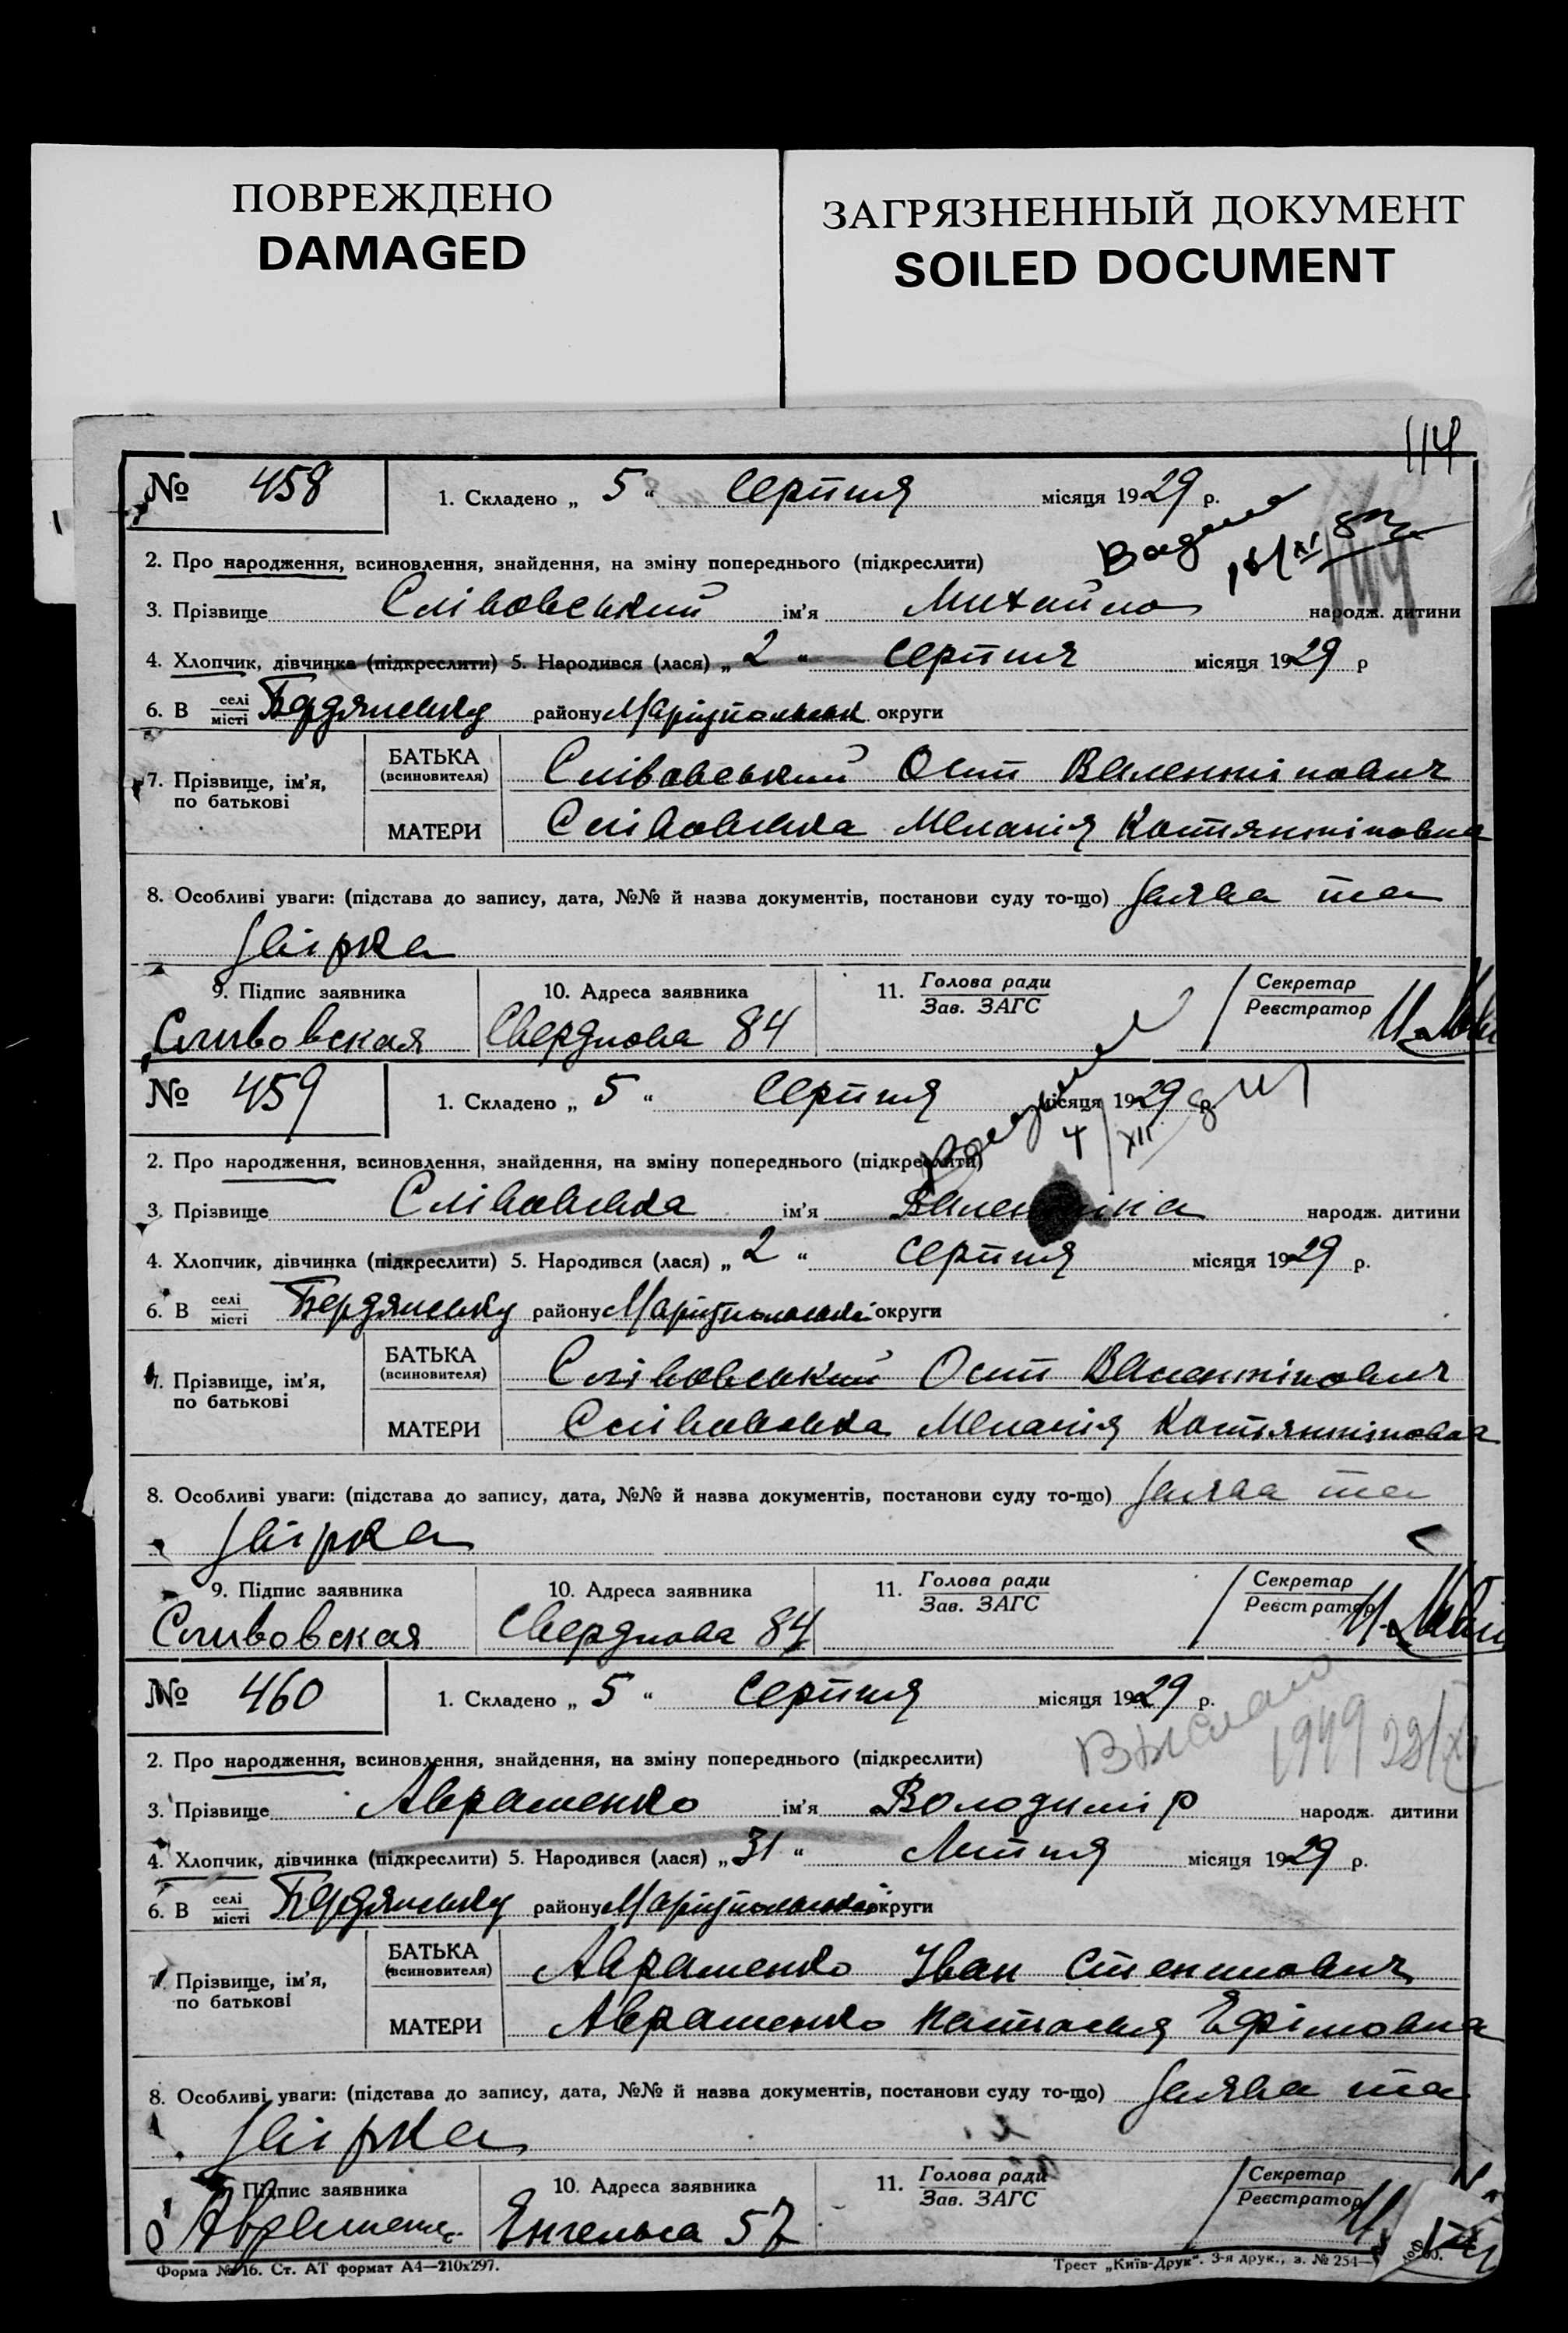 ПОВРЕЖДЕНО
DAMAGED
ЗАГРЯЗНЕННЫЙ ДОКУМЕНТ
SOILED DOCUMENT
114
№ 458 1. Складено „ 5 “ Серпня місяця 1929 р.
2. Про народження, всиновлення, знайдення, на зміну попереднього (підкреслити)
3. Прізвище Слівовський ім'я Михайло народж. дитини
4. Хлопчик, дівчинка (підкреслити) 5. Народився (лася) „ 2 “ Серпня місяця 1929 р
6. В селі місті Бердянську району Маріупольськ округи
7. Прізвище, ім'я, по батькові
БАТЬКА (всиновителя) Слівовський Осип Валентінович
МАТЕРИ Слівовська Меланія Костянтіновна
8. Особливі уваги: (підстава до запису, дата, №№ й назва документів, постанови суду то-що) Заява та
Звірка
9. Підпис заявника 10. Адреса заявника 11. Голова ради Зав. ЗАГС Секретар Реєстратор
Сливовская Свердлова 84
№ 459 1. Складено „ 5 “ Серпня місяця 1929 р.
2. Про народження, всиновлення, знайдення, на зміну попереднього (підкреслити)
3. Прізвище Слівовська ім'я Валентіна народж. дитини
4. Хлопчик, дівчинка (підкреслити) 5. Народився (лася) „ 2 “ Серпня місяця 1929 р.
6. В селі місті Бердянську району Маріупольської округи
7. Прізвище, ім'я, по батькові
БАТЬКА (всиновителя) Слівовський Осип Валентінович
МАТЕРИ Слівовська Меланія Костянтіновна
8. Особливі уваги: (підстава до запису, дата, №№ й назва документів, постанови суду то-що) Заява та
Звірка
9. Підпис заявника 10. Адреса заявника 11. Голова ради Зав. ЗАГС Секретар Реєстратор
Сливовская Свердлова 84
№ 460 1. Складено „ 5 “ Серпня місяця 1929 р.
2. Про народження, всиновлення, знайдення, на зміну попереднього (підкреслити)
1949
3. Прізвище Авраменко ім'я Володимір народж. дитини
4. Хлопчик, дівчинка (підкреслити) 5. Народився (лася) „ 31 “ Липня місяця 1929 р.
6. В селі місті Бердянську району Маріупольської округи
7. Прізвище, ім'я, по батькові
БАТЬКА (всиновителя) Авраменко Іван Степанович
МАТЕРИ Авраменко Настасия Ефімовна
8. Особливі уваги: (підстава до запису, дата, №№ й назва документів, постанови суду то-що) Заява та
Звірка
Підпис заявника 10. Адреса заявника 11. Голова ради Зав. ЗАГС Секретар Реєстратор
Енгельса 57
Форма № 16. Ст. АТ формат А4—210х297. Трест „Київ-Друк“. 3-я друк., з. № 254—